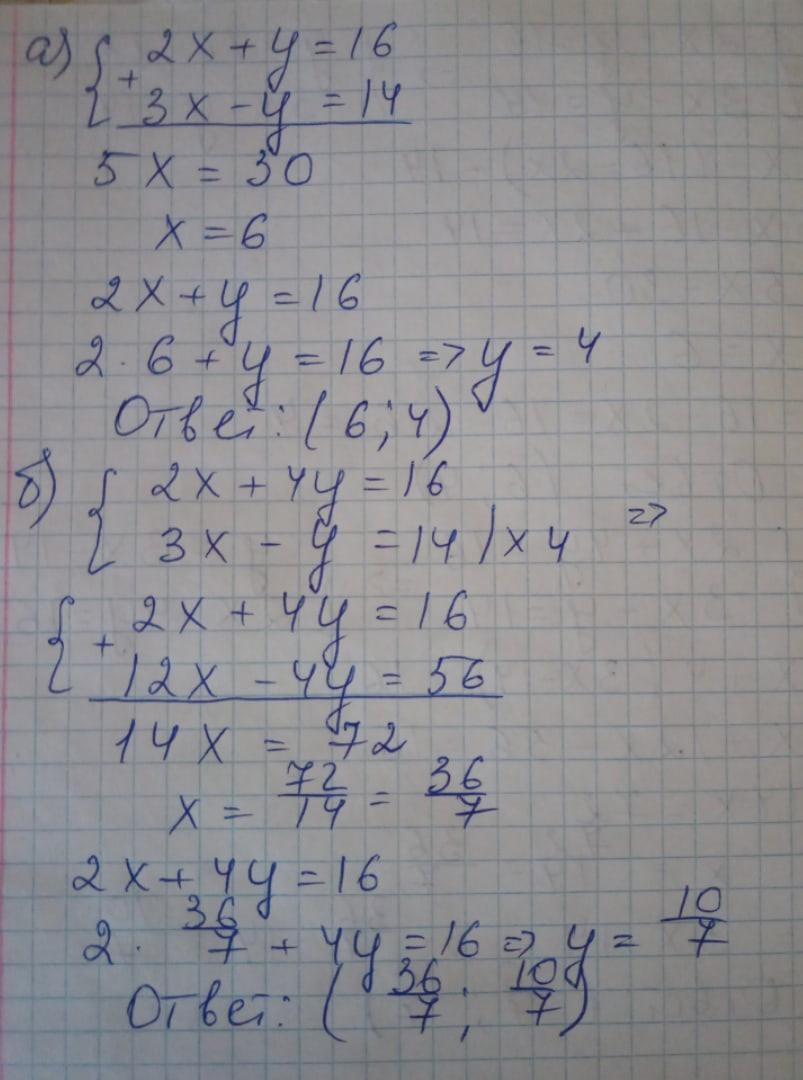 а) { 2x + y = 16
+ 3x - y = 14
5x = 30
x = 6
2x + y = 16
2 · 6 + y = 16 => y = 4
Ответ: (6; 4)
б) { 2x + 4y = 16
3x - y = 14 | × 4 =>
{ 2x + 4y = 16
+ 12x - 4y = 56
14x = 72
x = 72/14 = 36/7
2x + 4y = 16
2 · 36/7 + 4y = 16 => y = 10/7
Ответ: (36/7; 10/7)